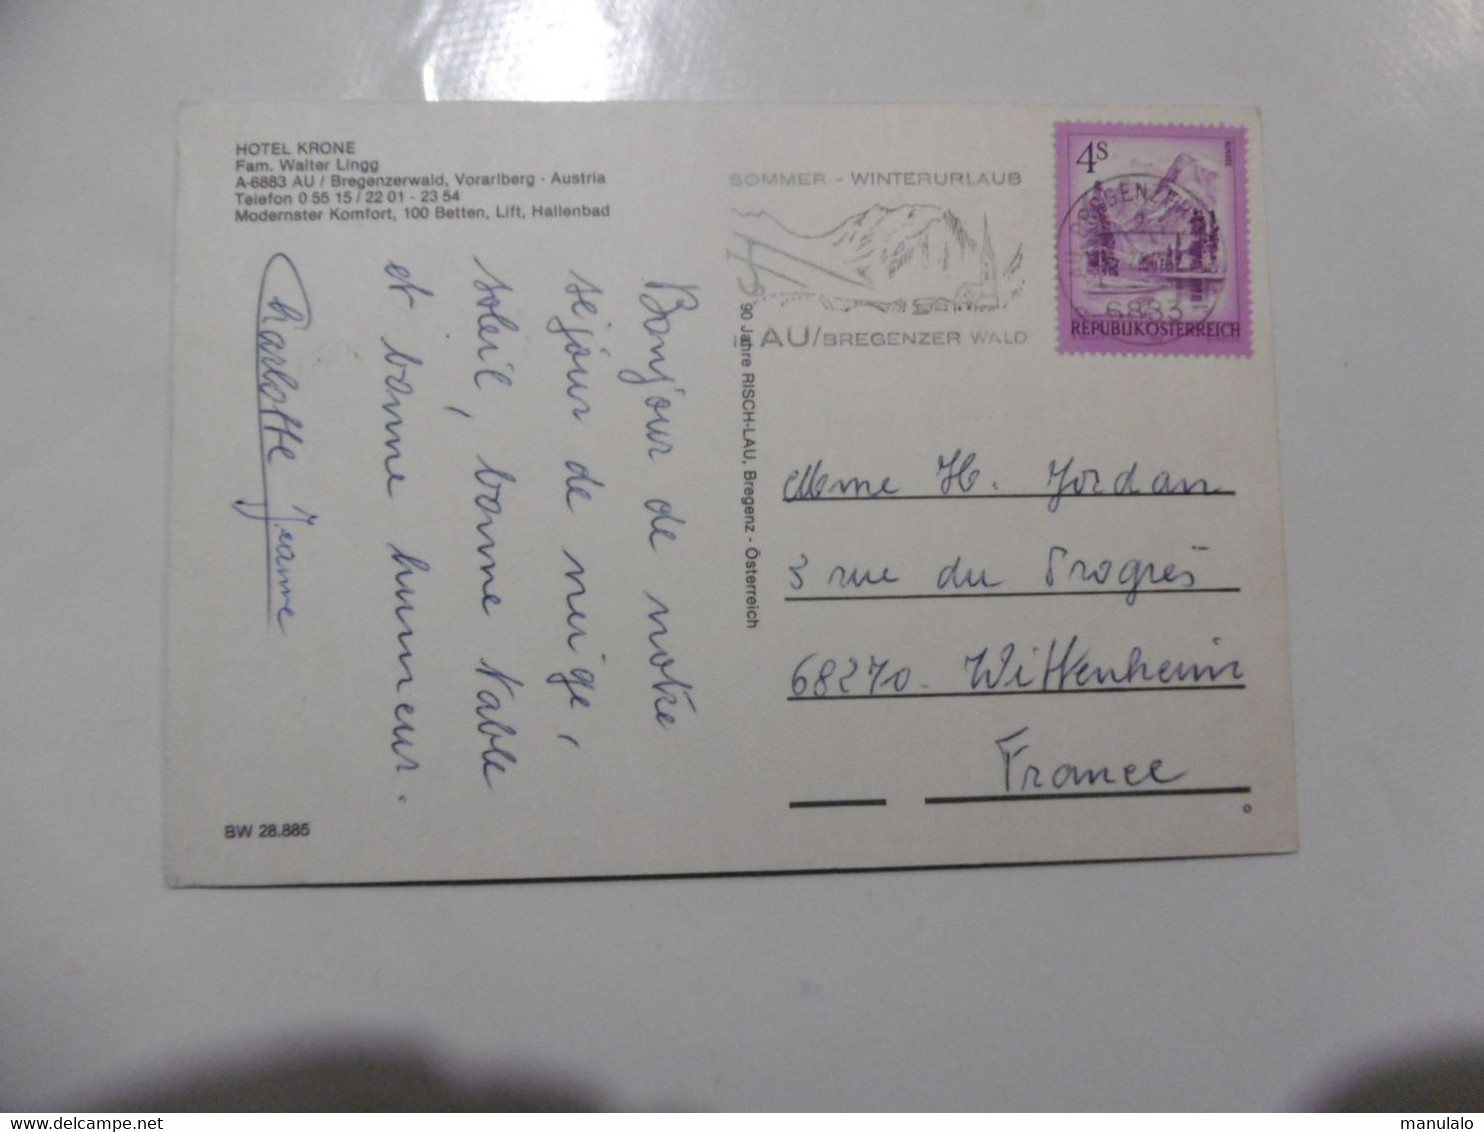 HOTEL KRONE
Fam. Walter Lingg
A-6883 AU / Bregenzerwald, Vorarlberg - Austria
Telefon 0 55 15 / 22 01 - 23 54
Modernster Komfort, 100 Betten, Lift, Hallenbad
Bonjour de notre
séjour de neige,
soleil, bonne table
et bonne humeur.
Charlotte Jeanne
BW 28.885
90 Jahre RISCH-LAU, Bregenz - Österreich
SOMMER - WINTERURLAUB
AU/BREGENZER WALD
4S
BREGENZER
6883
REPUBLIK ÖSTERREICH
Mme H. Jordan
3 rue du Progrès
68270. Wittenheim
France
delcampe.net
manulalo